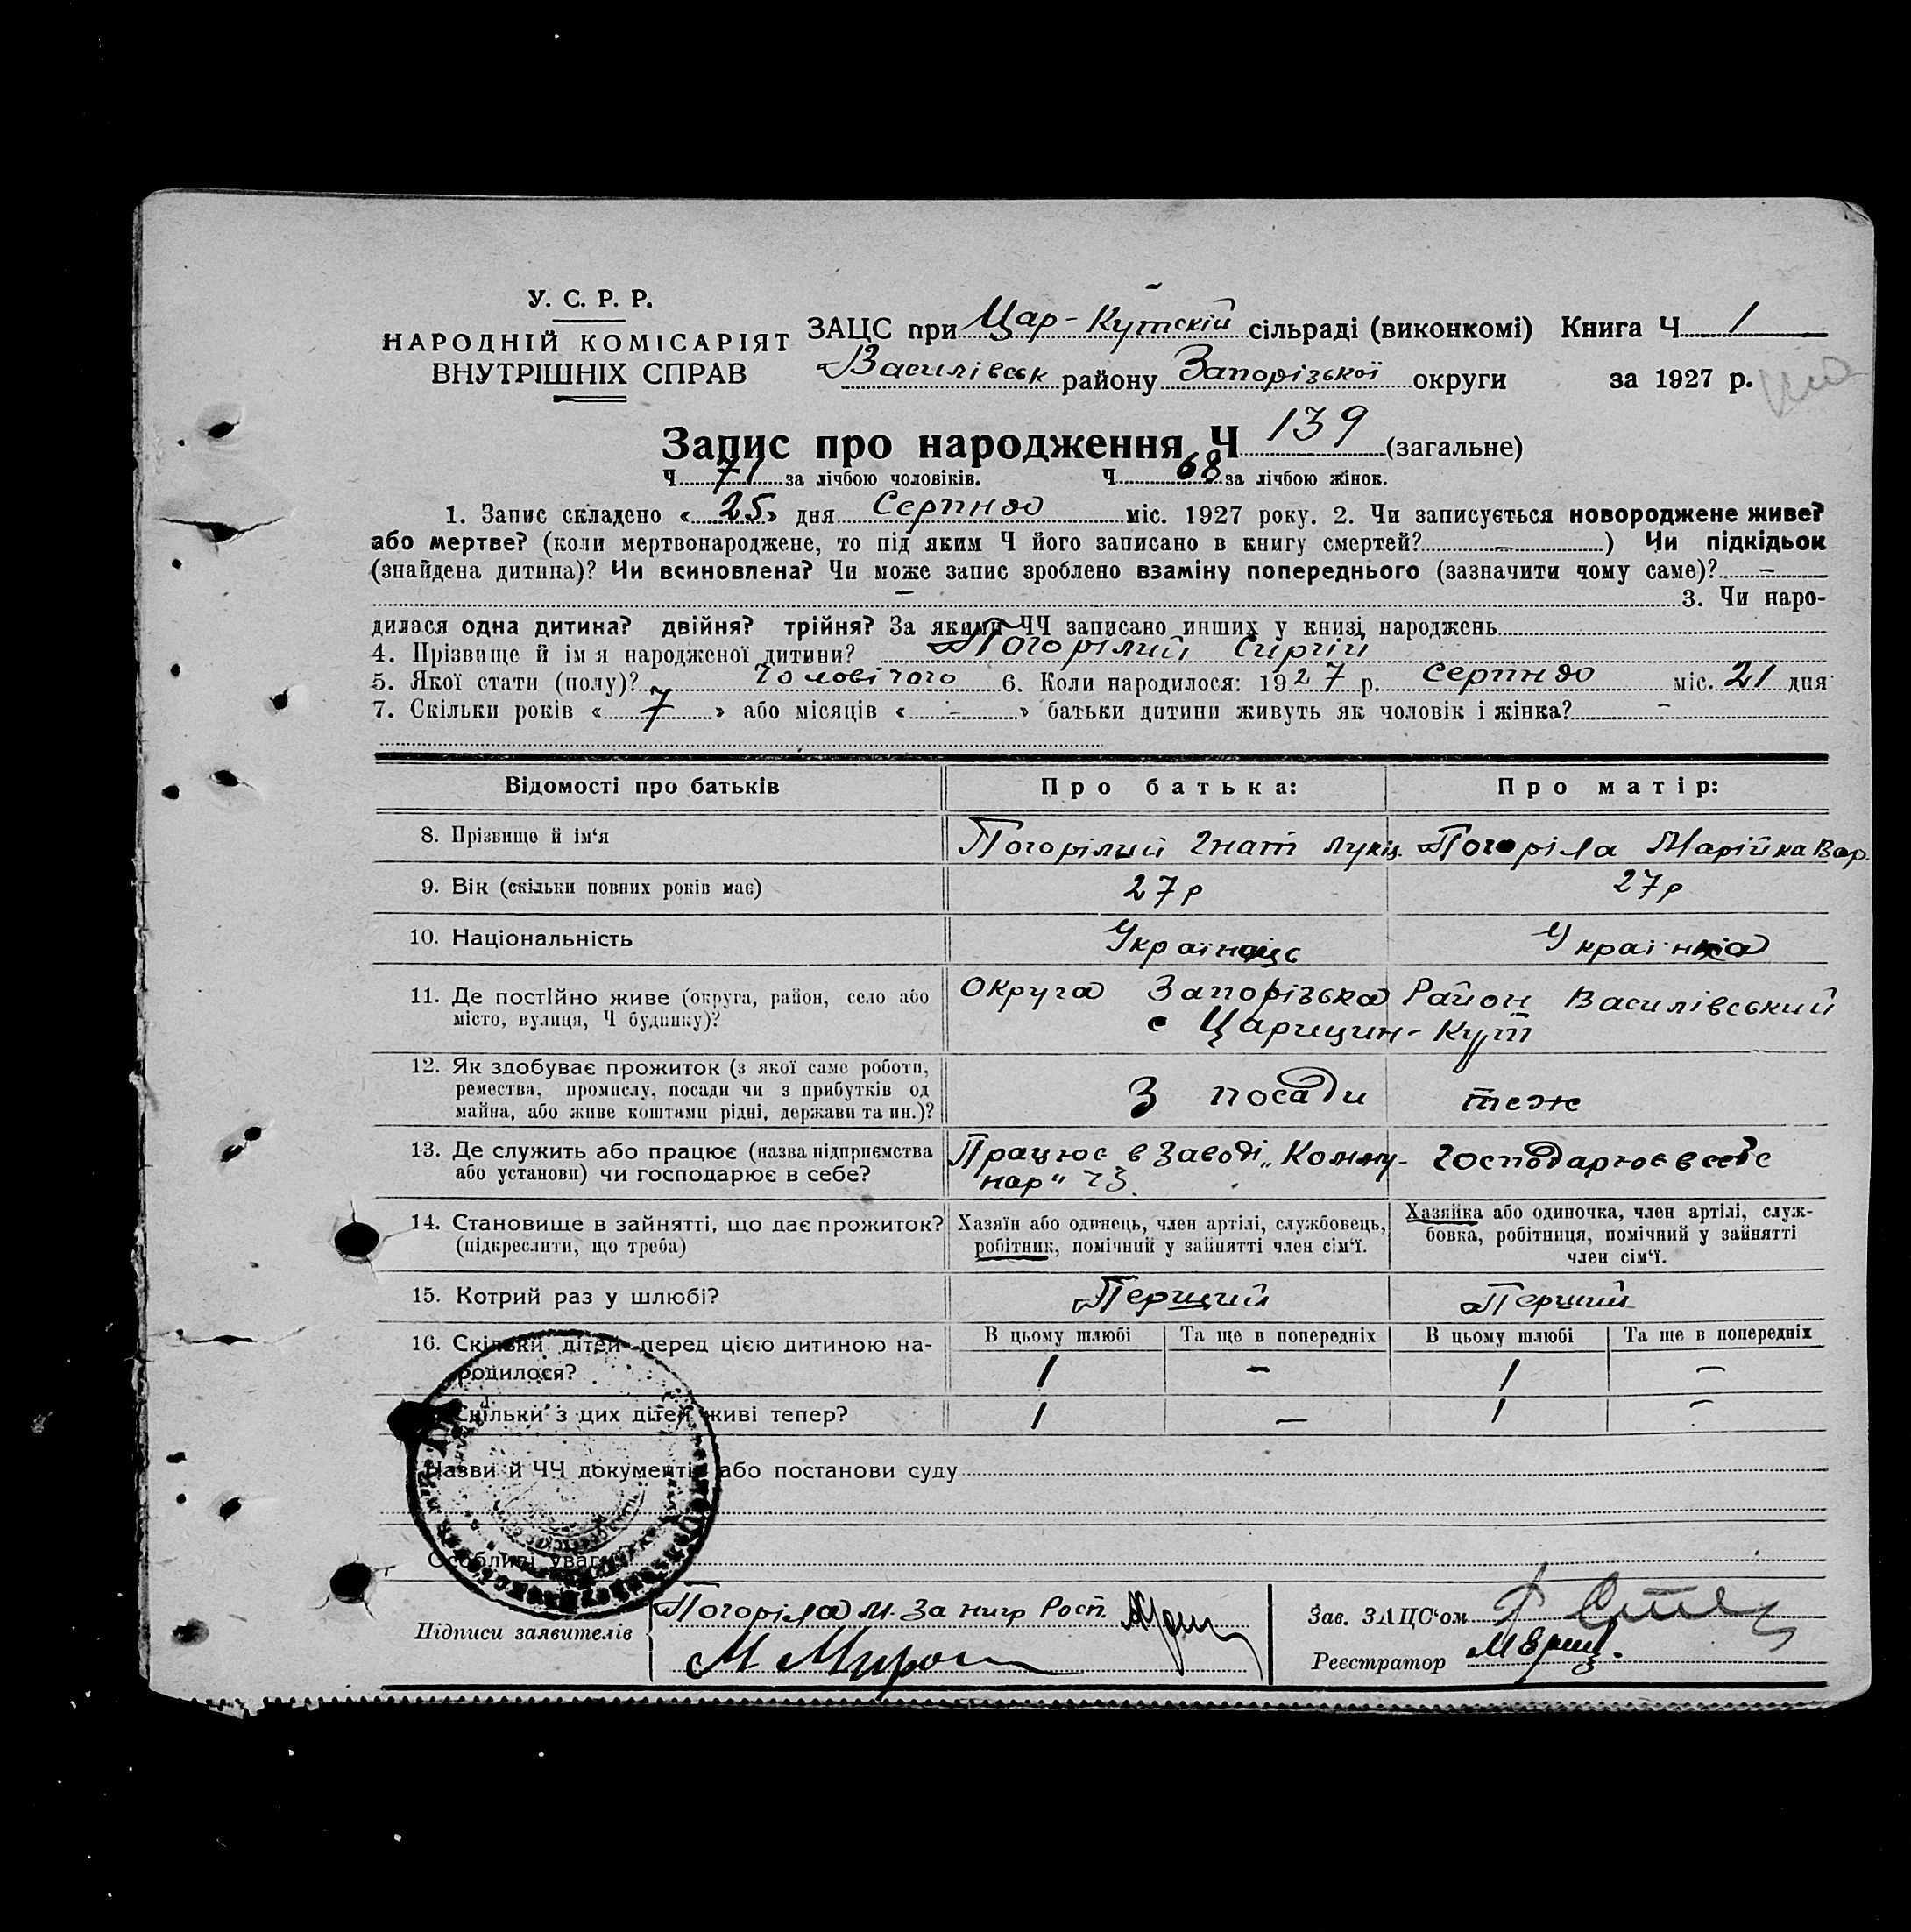 У. С. Р. Р.
НАРОДНІЙ КОМІСАРІЯТ
ВНУТРІШНІХ СПРАВ
ЗАЦС при Цар-Кутскій сільраді (виконкомі) Книга Ч 1
Василівськ району Запорізької округи за 1927 р.
Запис про народження Ч 139 (загальне)
Ч 71 за лічбою чоловіків. Ч 68 за лічбою жінок.
1. Запис складено « 25 » дня Серпндо міс. 1927 року. 2. Чи записується новороджене живе?
або мертве? (коли мертвонароджене, то під яким Ч його записано в книгу смертей? — ) Чи підкідьок
(знайдена дитина)? Чи всиновлена? Чи може запис зроблено взаміну попереднього (зазначити чому саме)? —
— 3. Чи наро-
дилася одна дитина? двійня? трійня? За якими ЧЧ записано инших у книзі народжень
4. Прізвище й ім я народженої дитини? Погорілий Сиргій
5. Якої стати (полу)? Чоловічого 6. Коли народилося: 1927 р. Серпндо міс. 21 дня
7. Скільки років « 7 » або місяців « - » батьки дитини живуть як чоловік і жінка? -
Відомості про батьків Про батька: Про матір:
8. Прізвище й ім‘я Погорілий Гнат Лукіч. Погоріла Марійка Вар.
9. Вік (скільки повних років має) 27 р 27 р
10. Національність Українець Українка
11. Де постійно живе (округа, район, село або Округа Запорізька Район Василівський
місто, вулиця, Ч будинку)? с Царицин-Кут
12. Як здобуває прожиток (з якої саме роботи,
ремества, промислу, посади чи з прибутків од З посади теж
майна, або живе коштами рідні, держави та ин.)?
13. Де служить або працює (назва підприємства Працює в Заводі „Комму- Господарює в себе
або установи) чи господарює в себе? нар“ ч3.
14. Становище в зайнятті, що дає прожиток? Хазяїн або одинець, член артілі, службовець, Хазяйка або одиночка, член артілі, служ-
(підкреслити, що треба) робітник, помічний у зайнятті член сім‘ї. бовка, робітниця, помічний у зайнятті
член сім‘ї.
15. Котрий раз у шлюбі? Перщий Перший
В цьому шлюбі Та ще в попередніх В цьому шлюбі Та ще в попередніх
16. Скільки дітей перед цією дитиною на-
родилося? 1 — 1 —
Скільки з цих дітей живі тепер? 1 — 1 —
Назви й ЧЧ документів або постанови суду
Особливі уваги
Підписи заявителів Погоріла М. За нигр Росп.
Зав. ЗАЦС‘ом
Реєстратор